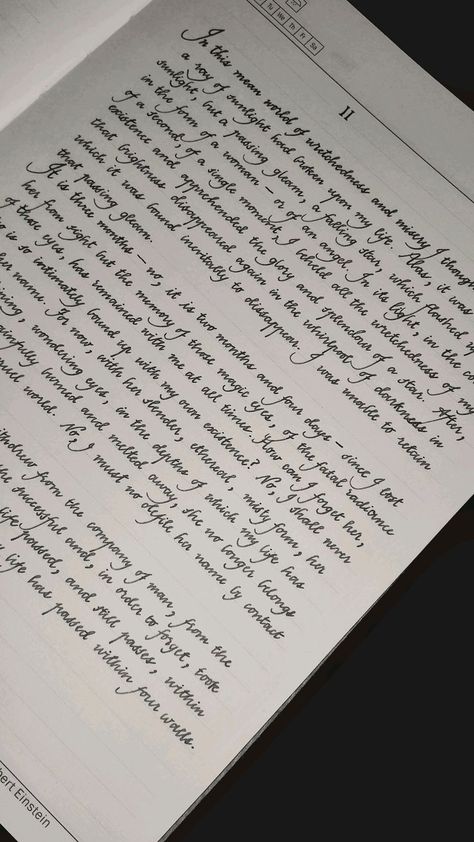 Tu We Th Fr Sa
11
In this mean world of wretchedness and misery I thought
a ray of sunlight had broken upon my life. Alas, it was
sunlight, but a passing gleam, a falling star, which flashed
in the form of a woman – or of an angel. In its light, in the co
of a second, of a single moment, I beheld all the wretchedness of my
existence and apprehended the glory and splendour of a star. After,
that brightness disappeared again in the whirlpool of darkness in
which it was bound inevitably to disappear. I was unable to retain
that passing gleam.
It is three months – no, it is two months and four days – since I lost
her from sight but the memory of those magic eyes, of the fatal radiance
of those eyes, has remained with me at all times. How can I forget her,
o is so intimately bound up with my own existence? No, I shall never
her name. For now, with her slender, ethereal, misty form, her
ning, wondering eyes, in the depths of which my life has
nfully burned and melted away, she no longer belongs
ruel world. No, I must no defile her name by contact
ithdrew from the company of man, from the
he successful and, in order to forget, took
life passed, and still passes, within
life has passed within four walls.
bert Einstein